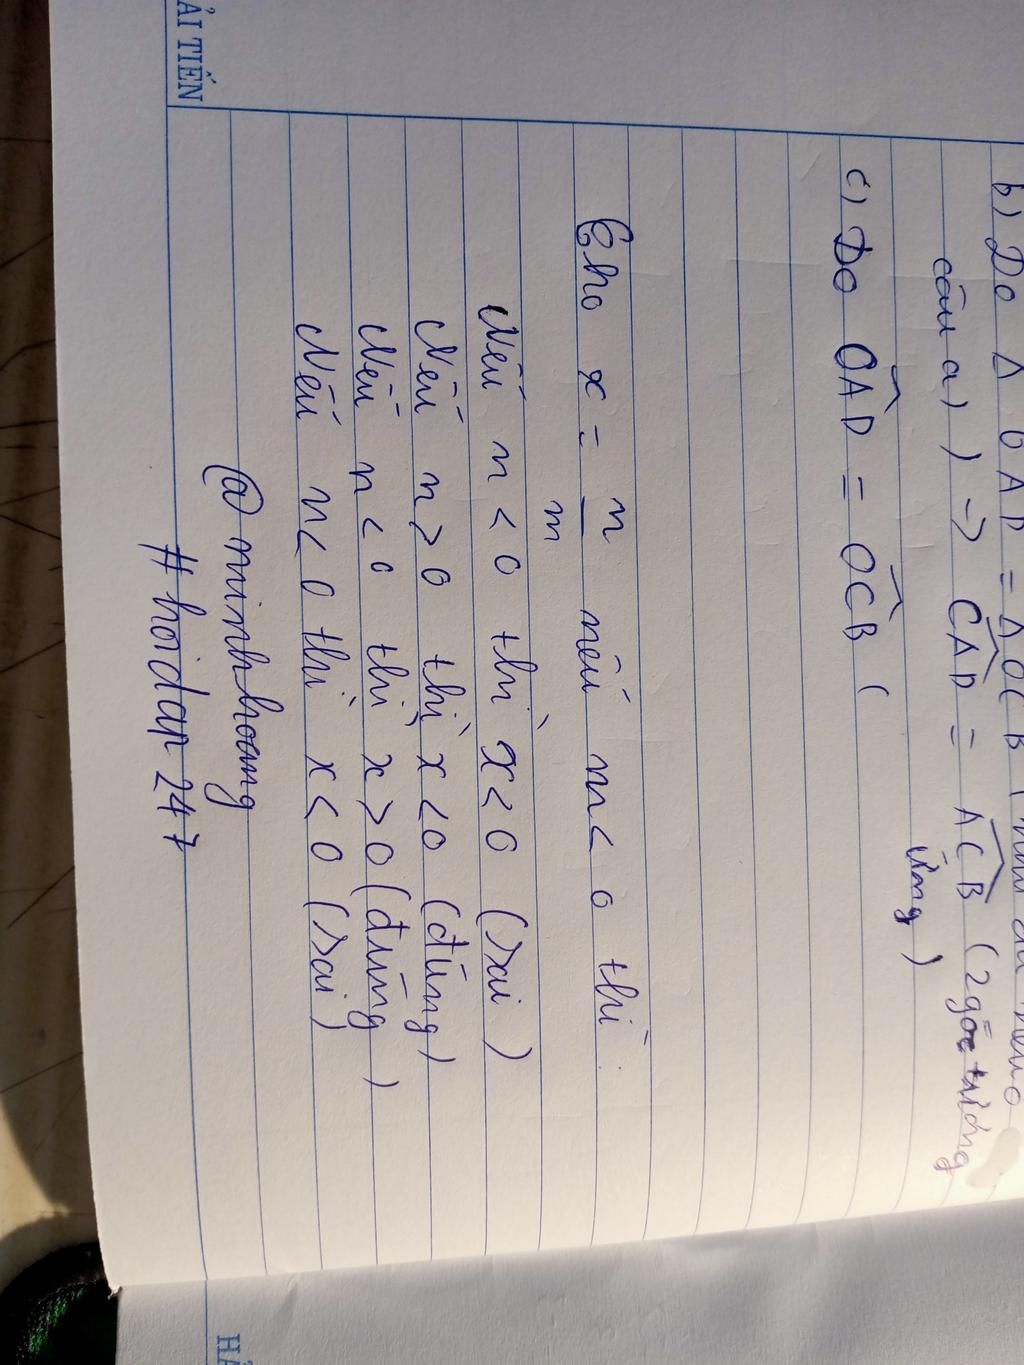 b) Do Δ OAD = ΔOCB (
câu a) → CAD = ACB (2 góc tương
ứng)
c) Do OAD = OCB (
Cho x = n/m nếu m < 0 thì:
Nếu n < 0 thì x < 0 (sai)
Nếu n > 0 thì x < 0 (đúng)
Nếu n < 0 thì x > 0 (đúng)
Nếu n < 0 thì x < 0 (sai)
@minhhoang
#hoidap247
ẢI TIẾN
HẢ